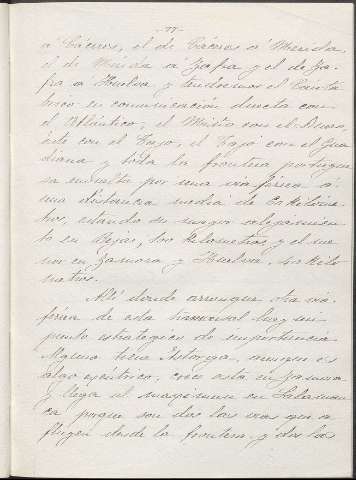 -77-
á Cáceres, el de Cáceres á Mérida,
el de Mérida á Zafra y el de Za-
fra á Huelva, y tendremos el Cantá-
brico en comunicación directa con
el Atlántico; el Miño con el Duero,
éste con el Tajo, el Tajo con el Gua
diana y toda la frontera portugue
sa envuelta por una vía férrea á
una distancia media de kilóme-
tros, estando su mayor alejamien
to en Béjar, 100 kilómetros, y el me
nor en Zamora y Huelva, kiló
metros.
Allí donde arranque otra vía
férrea de esta transversal hay un
punto estratégico de importancia
Alguno tiene Astorga, aunque es
algo excéntrico, crece ésta en Zamora
y llega al maximum en Salaman
ca porque son dos las vías que a
fluyen desde la frontera, y dos las